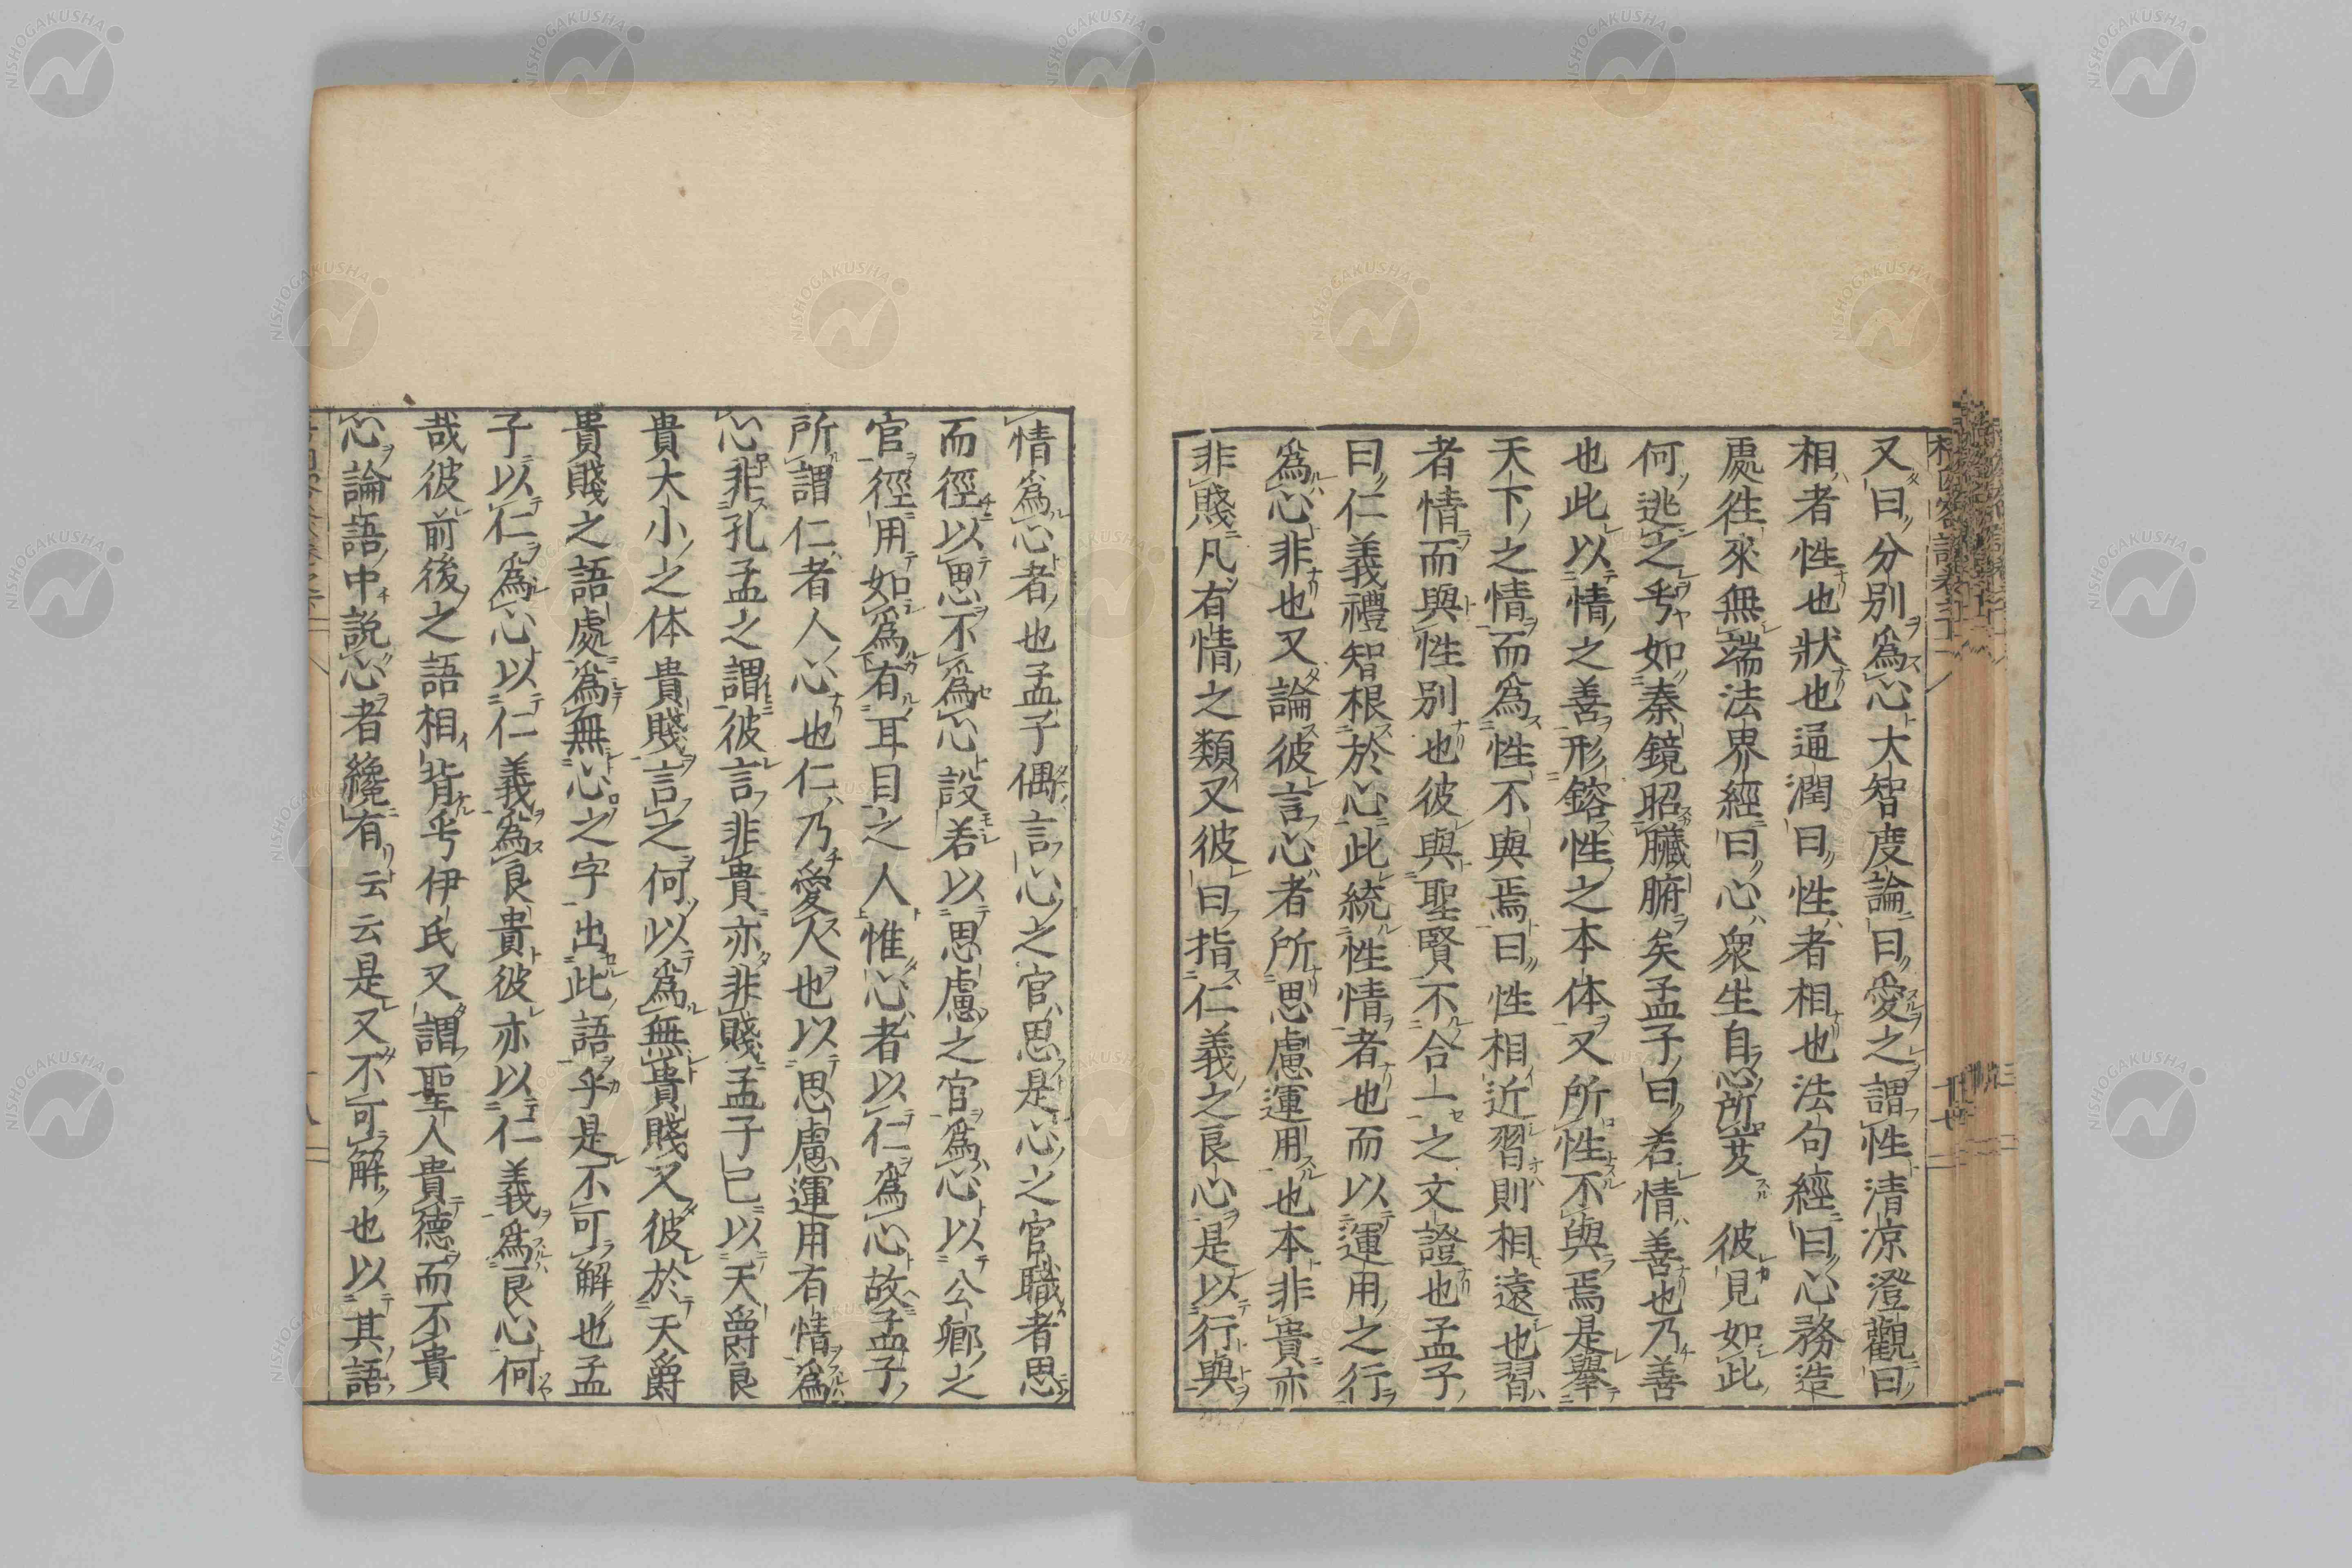 又曰分別為心大智度論曰愛之謂性清凉澄觀曰
相者性也狀也通潤曰性者相也法句經曰心務造
處徃來無端法界經曰心衆生自恣所変彼見如此
何逃之乎如秦鏡昭臓腑矣孟子曰若情善也乃善
也此以情之善形鎔性之本体又所性不與焉是擧
天下之情而為性不與焉曰性相近習則相遠也習
者情而與性別也彼與聖賢不合一之文證也孟子
曰仁義禮智根於心此統性情者也而以運用之行
為心非也又論彼言心者所思慮運用也本非貴亦
非賤凡有情之類又彼曰指仁義之良心是以行與
情為心者也孟子偶言心之官思是心之官職者思
而徑以思不為心設若以思慮之官為心以公卿之
官徑用如為有耳目之人惟心者以仁為心故孟子
所謂仁者人心也仁乃愛人也以思慮運用有情為
心非孔孟之謂彼言非貴亦非賤孟子已以天爵良
貴大小之体貴賤言之何以為無貴賤又彼於天爵
貴賤之語處為無心之字出此語乎是不可解也孟
子以仁為心以仁義為良貴彼亦以仁義為良心何
哉彼前後之語相背乎伊氏又謂聖人貴德而不貴
心論語中説心者纔有云云是又不可解也以其語